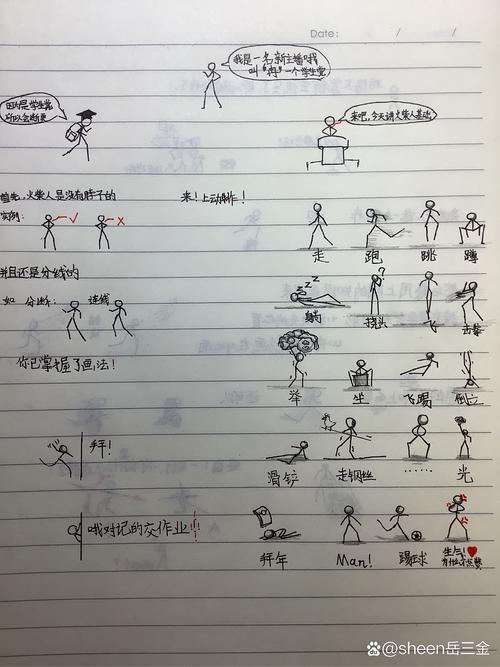 Date: / /
我是一名新主播哦
叫“冉”一个学生党
因为是学生党
所以会断更
来吧,今天讲火柴人基础
首先,火柴人是没有脖子的
来!上动作!
实例:
走 跑 跳 蹲
并且还是分线的
如 分断: 连线
zzz
?
躺 挠头 飞 击拳
你已掌握了画法!
举 坐 飞踢 倒立
拜!
滑铲 走钢丝 …… 光
哦对记的交作业!!!
拜年 Man! 踢球 生气!
为什么不点赞
@sheen岳三金